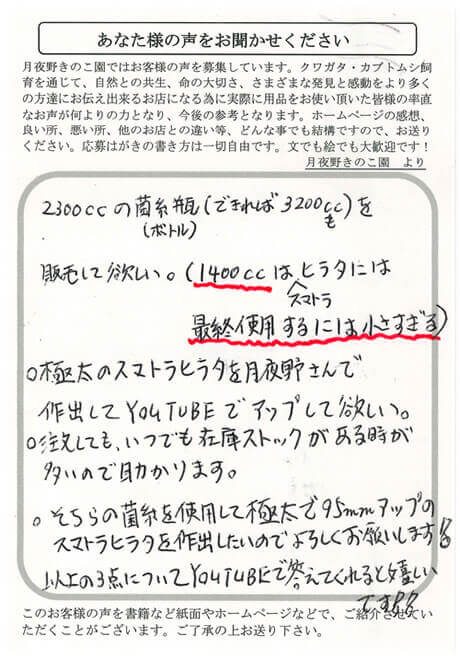 あなた様の声をお聞かせください
月夜野きのこ園ではお客様の声を募集しています。クワガタ・カブトムシ飼
育を通じて、自然との共生、命の大切さ、さまざまな発見と感動をより多く
の方達にお伝え出来るお店になる為に実際に用品をお使い頂いた皆様の率直
なお声が何よりの力となり、今後の参考となります。ホームページの感想、
良い所、悪い所、他のお店との違い等、どんな事でも結構ですので、お送り
ください。応募はがきの書き方は一切自由です。文でも絵でも大歓迎です！
月夜野きのこ園　より
2300ccの菌糸瓶(できれば3200cc)を
(ボトル)
も
販売して欲しい。(1400ccはヒラタには
スマトラ
最終使用するには小さすぎる)
○極太のスマトラヒラタを月夜野さんで
作出してYOUTUBEでアップして欲しい。
○注文しても、いつでも在庫ストックがある時が
多いので助かります。
○そちらの菌糸を使用して極太で95mmアップの
スマトラヒラタを作出したいのでよろしくお願いします!!
以上の3点についてYOUTUBEで答えてくれると嬉しい
です!!
このお客様の声を書籍など紙面やホームページなどで、ご紹介させてい
ただくことがございます。ご了承の上お送り下さい。